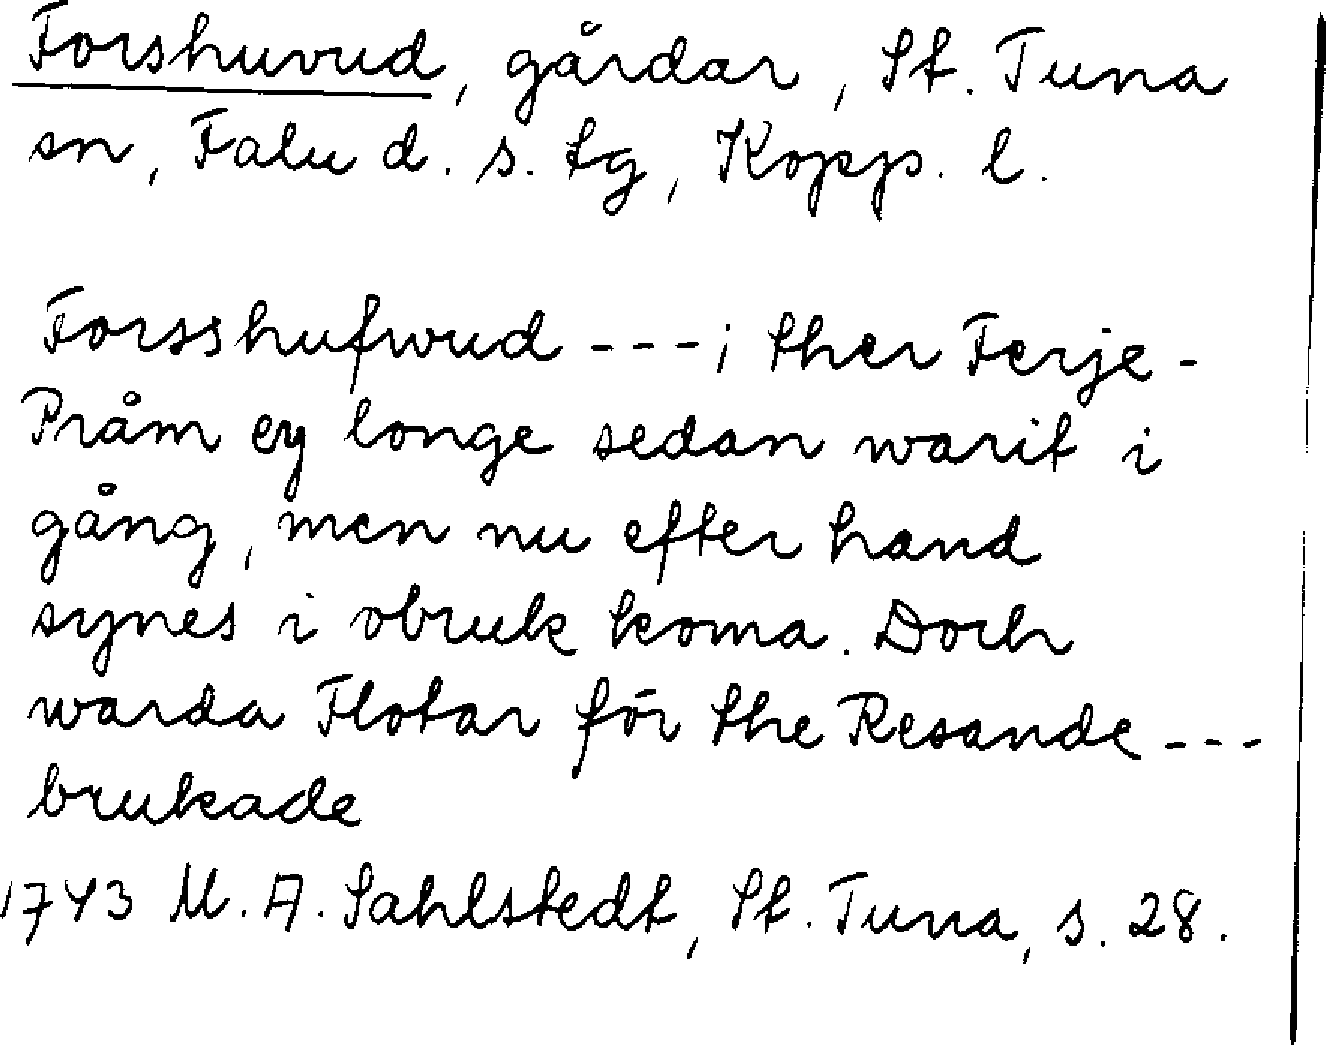 Forshuvud, gårdar, St. Tuna
sn, Falu d. s. tg, Kopp. l.
Forsshufwud ---; ther Ferje-
Pråm ey longe sedan warit i
gång, men nu efter hand
synes i obruk koma. Doch
warda Flotar för the Resande ---
brukade
1743 M. A. Sahlstedt, St. Tuna, s. 28.